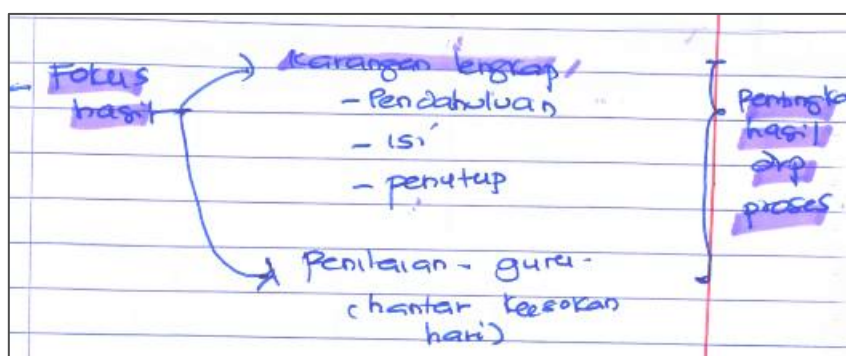 - Fokus hasil
Karangan lengkap
- Pendahuluan
- isi
- penutup
Penilaian - guru -
(hantar keesokan
hari)
Pentingka
hasil
drp
proses